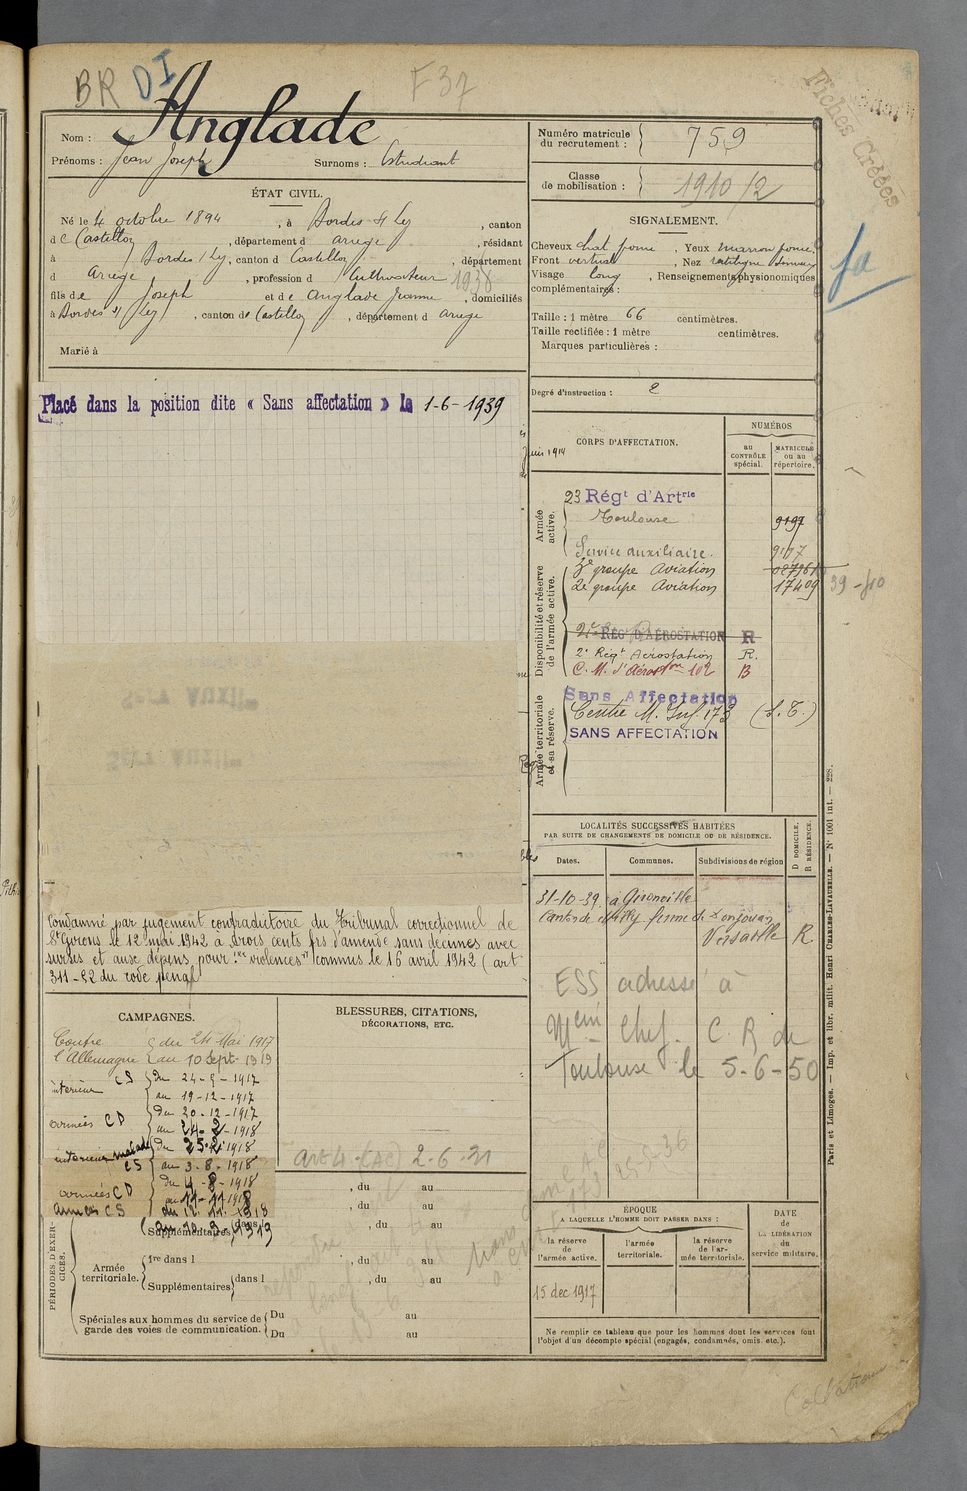 BR DI F 37
Fiches Créées
Anglade
Nom :
Prénoms : Jean Joseph Surnoms : Estudiant
Numéro matricule du recrutement : 759
Classe de mobilisation : 1910/2
ÉTAT CIVIL.
Né le 4 octobre 1894, à Bordes s/ Lez, canton
de Castillon, département d Ariege, résidant
à Bordes s/ Lez, canton d Castillon, département
d Ariege, profession d Cultivateur 1938
fils de Joseph et de Anglade Jeanne, domiciliés
à Bordes s/ Lez, canton de Castillon, département d Ariege
Marié à
SIGNALEMENT.
Cheveux chat. fonce, Yeux marron fonce
Front vertical, Nez rectiligne
Visage long, Renseignements physionomiques
complémentaires :
Taille : 1 mètre 66 centimètres.
Taille rectifiée : 1 mètre centimètres.
Marques particulières :
Degré d'instruction : 2
Placé dans la position dite « Sans affectation » le 1-6-1939
juin 1914
CORPS D'AFFECTATION.
NUMÉROS
au CONTRÔLE spécial.
MATRICULE ou au répertoire.
Armée active.
23 Régt d'Artrie
Toulouse 9197
Service auxiliaire. 9117
Disponibilité et réserve de l'armée active.
3e groupe Aviation
2e groupe Aviation 17409 39-40
RÉG D'AÉROSTATION R
2e Régt Aérostation R.
C. M. d'Aérostion 102 B
Armée territoriale et sa réserve.
Sans Affectation
Centre M. Inf. 173 (S.T.)
SANS AFFECTATION
LOCALITÉS SUCCESSIVES HABITÉES
PAR SUITE DE CHANGEMENTS DE DOMICILE OU DE RÉSIDENCE.
Dates. Communes. Subdivisions de région
D DOMICILE.
R RÉSIDENCE.
31-10-39. à Gironville
Canton de Milly ferme de
Versaille R.
ESS adressé à
Mein Chef. C R de
Toulouse le 5-6-50
Condamné par jugement contradictoire du Tribunal correctionnel de
St Girons le 12 mai 1942 à trois cents frs d'amende sans décimes avec
sursis et aux dépens pour : "violences" commis le 16 avril 1942 (art
311-§2 du code pénal
CAMPAGNES.
Contre l'Allemagne du 24 Mai 1917
au 10 Sept- 1919
intérieur CS du 24-5-1917
au 19-12-1917
armées CD du 20-12-1917
au 24-2-1918
intérieur malade CS du 25-2-1918
au 3-8-1918
armées CD du 4-8-1918
au 11-11-1918
armées CS du 12.11.1918
au 10.9.1919
BLESSURES, CITATIONS,
DÉCORATIONS, ETC.
Art 4 (AC) 2-6-31
25-5-36
PÉRIODES D'EXERCICES.
, du au
, du au
Supplémentaires dans l , du au
Armée territoriale.
1re dans l , du au
Supplémentaires dans l , du au
Spéciales aux hommes du service de garde des voies de communication.
Du au
Du au
ÉPOQUE
A LAQUELLE L'HOMME DOIT PASSER DANS :
la réserve de l'armée active.
l'armée territoriale.
la réserve de l'armée territoriale.
DATE de LA LIBÉRATION du service militaire.
15 dec 1917
Ne remplir ce tableau que pour les hommes dont les services font
l'objet d'un décompte spécial (engagés, condamnés, omis, etc.).
Paris et Limoges. — Imp. et libr. milit. Henri CHARLES-LAVAUZELLE. — N° 1001 int. — 228.